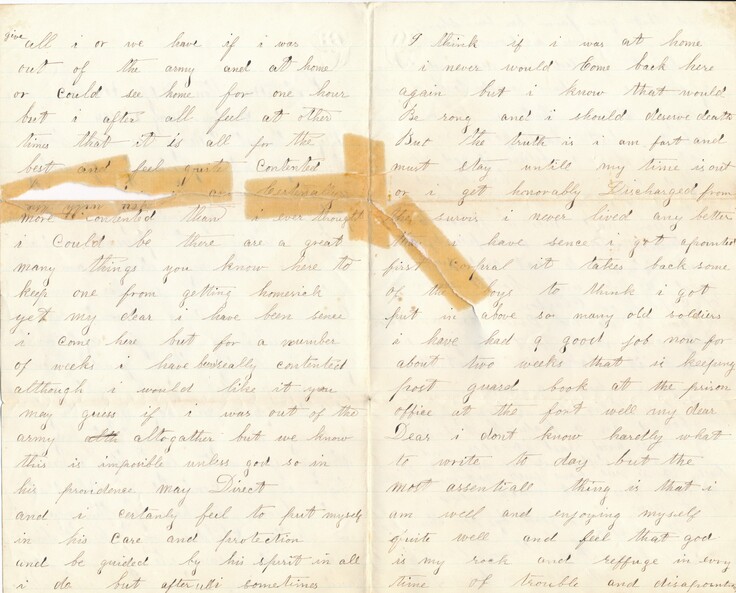 give all i or we have if i was
out of the army and at home
or Could see home for one hour
but i after all feel at other
times that it is all for the
best and feel quite Contented
i am
more Contented than i ever thought
i Could be there are a great
many things you know here to
keep one from getting homesick
yet my dear i have been sence
i come here but for a number
of weeks i have been really contented
although i would like it you
may guess if i was out of the
army altogather but we know
this is imposible unless god so in
his providence may Direct
and i certanly feel to put myself
in his Care and protection
and be guided by his spirit in all
i do but after all i sometimes
I think if i was at home
i never would Come back here
again but i know that would
Be rong and i should deserve death
But the truth is i am fast and
must stay untill my time is out
or i get honorably Discharged from
the survis i never lived any better
than i have sence i got apointed
first Corpral it takes back some
of the boys to think i got
put in above so many old soldiers
i have had a good job now for
about two weeks that is keeping
post guard book at the prison
office at the fort well my dear
Dear i dont know hardly what
to write to day but the
most assentiall thing is that i
am well and enjoying myself
quite well and feel that god
is my rock and reffuge in evry
time of trouble and